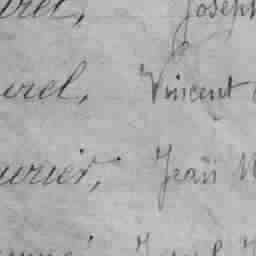 urel, Joseph
urel, Vincent
uvrier, Jean M